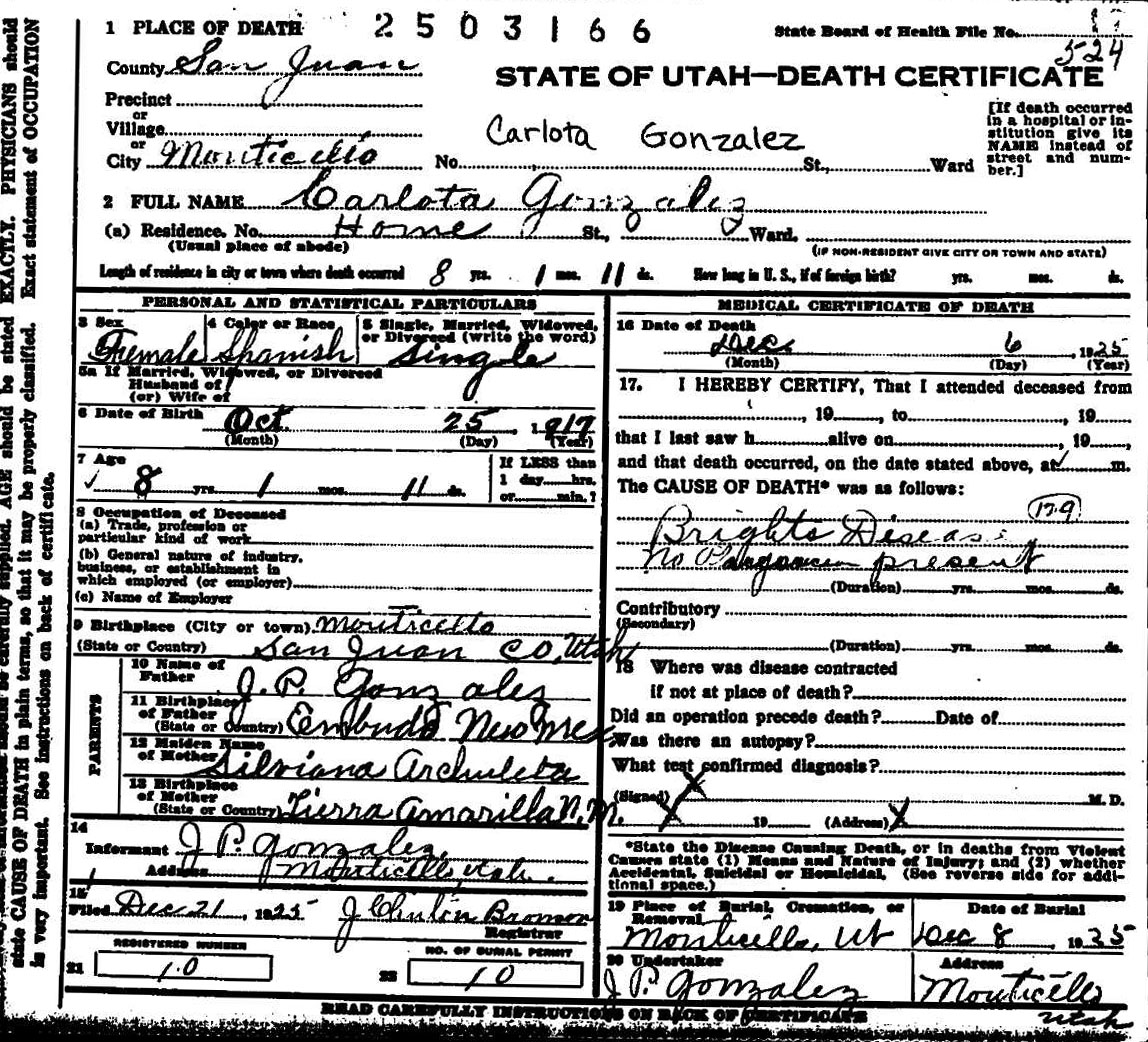 1 PLACE OF DEATH 2503166 State Board of Health File No. 524
County San Juan STATE OF UTAH—DEATH CERTIFICATE
Precinct
or
Village
or
City Monticello No. St., Ward
Carlota Gonzalez
[If death occurred in a hospital or institution give its NAME instead of street and number.]
2 FULL NAME Carlota Gonzalez
(a) Residence. No. Home St., Ward.
(Usual place of abode) (IF NON-RESIDENT GIVE CITY OR TOWN AND STATE)
Length of residence in city or town where death occurred 8 yrs. 1 mos. 11 ds. How long in U. S., if of foreign birth? yrs. mos. ds.
PERSONAL AND STATISTICAL PARTICULARS
3 Sex 4 Color or Race 5 Single, Married, Widowed, or Divorced (write the word)
Female Spanish Single
5a If Married, Widowed, or Divorced
Husband of
(or) Wife of
6 Date of Birth Oct. 25, 1917
(Month) (Day) (Year)
7 Age If LESS than
8 yrs. 1 mos. 11 ds. 1 day hrs.
or min.?
8 Occupation of Deceased
(a) Trade, profession or
particular kind of work
(b) General nature of industry,
business, or establishment in
which employed (or employer)
(c) Name of Employer
9 Birthplace (City or town) Monticello
(State or Country) San Juan Co, Utah
PARENTS
10 Name of
Father J. P. Gonzales
11 Birthplace
of Father
(State or Country) Embudo New Mex
12 Maiden Name
of Mother Silviana Archuleta
13 Birthplace
of Mother
(State or Country) Tierra Amarilla N. M.
14
Informant J P. Gonzalez,
Address Monticello, Utah.
15
Filed Dec 21, 1925 J Bronson
Registrar
REGISTERED NUMBER NO. OF BURIAL PERMIT
21 10 22 10
MEDICAL CERTIFICATE OF DEATH
16 Date of Death
Dec. 6, 1925
(Month) (Day) (Year)
17. I HEREBY CERTIFY, That I attended deceased from
, 19 , to , 19
that I last saw h alive on , 19 ,
and that death occurred, on the date stated above, at m.
The CAUSE OF DEATH* was as follows:
129
Brights Disease
No present
(Duration) yrs. mos. ds.
Contributory
(Secondary)
(Duration) yrs. mos. ds.
18 Where was disease contracted
if not at place of death?
Did an operation precede death? Date of
Was there an autopsy?
What test confirmed diagnosis?
(Signed) X M. D.
X 19 (Address) X
*State the Disease Causing Death, or in deaths from Violent
Causes state (1) Means and Nature of Injury; and (2) whether
Accidental, Suicidal or Homicidal. (See reverse side for additional space.)
19 Place of Burial, Cremation, or Removal Date of Burial
Monticello, Ut Dec 8, 1925
20 Undertaker Address
J P. Gonzalez Monticello
Utah
READ CAREFULLY INSTRUCTIONS ON BACK OF CERTIFICATE
should be carefully supplied. AGE should be stated EXACTLY. PHYSICIANS should
state CAUSE OF DEATH in plain terms, so that it may be properly classified. Exact statement of OCCUPATION
is very important. See instructions on back of certificate.